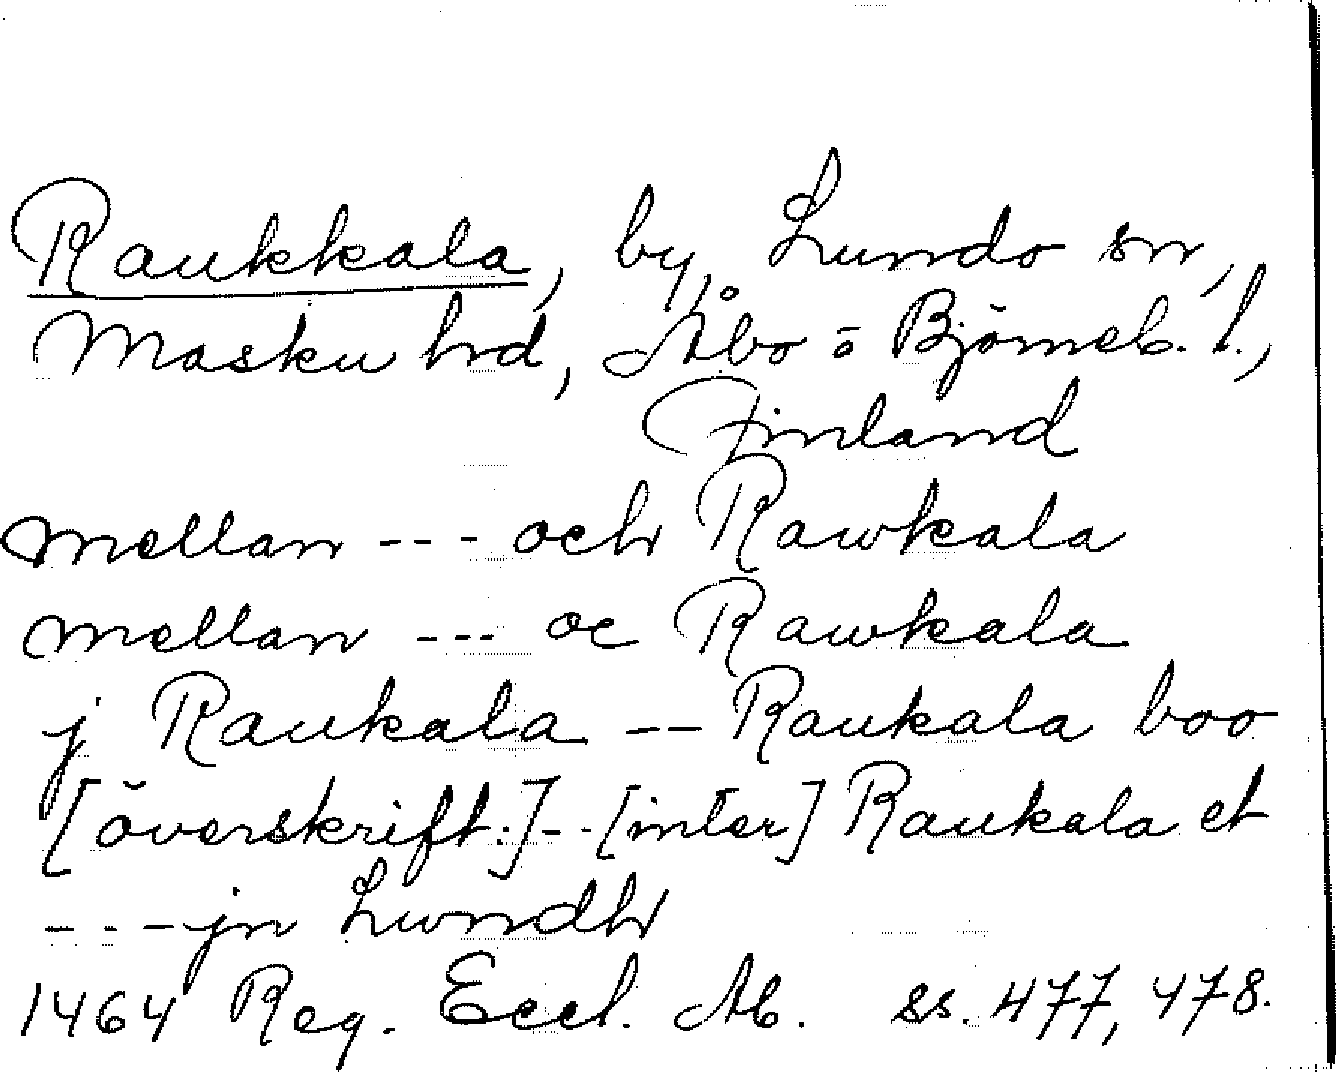 Raukkala, by, Lundo sn,
Masku hrd, Åbo o Björneb. l.,
Finland
mellan --- och Rawkala
mellan --- oc Rawkala
j Raukala -- Raukala boo
[överskrift.]--[inter] Raukala et
---jn Lwndh
1464 Reg. Eccl. Ab. ss. 477, 478.